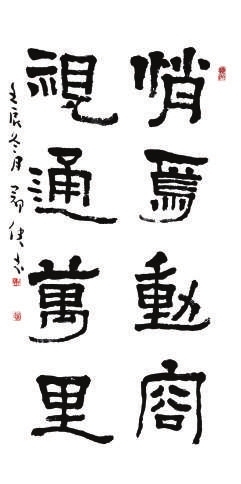 悄焉動容
視通萬里
壬辰冬月